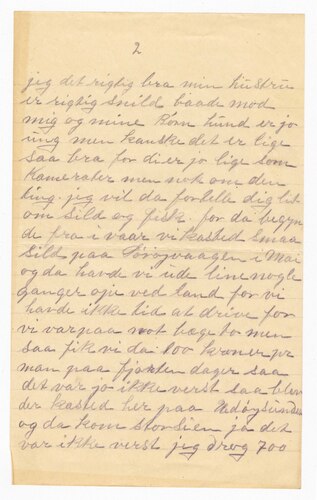 2
jeg det rigtig bra min hustru
er rigtig snild baade mod
mig og mine Børn hund er jo
ung men kanske det er lige
saa bra for di er jo lige som
Kamerater men nok om den
ting. jeg vil da fortelle dig lit
om sild og fisk. for da begyn
de fra i vaar vi kasted Smaa
Sild paa Sørøyvaagen i Mai
og da havde vi ude line nogle
ganger oje ved land for vi
havde ikke tid at drive for
vi var paa not bæge to men
saa fik vi da 100 kroner pr
man paa fjorten dager saa
det var jo ikke verst saa blev
der kasted her paa
og da kom storsien ja det
var ikke verst jeg drog 700